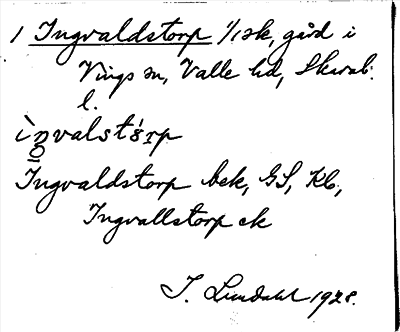 1 Ingvaldstorp 1/1 sk, gård i
Vings sn, Valle hd, Skarab.
l.
Ingvaldstorp bek, GS, Kb,
Ingvallstorp ek
I. Lundahl 1928.